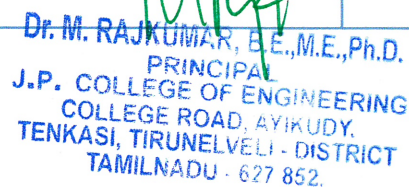 Dr. M. RAJKUMAR, B.E.,M.E.,Ph.D.
PRINCIPAL
J.P. COLLEGE OF ENGINEERING
COLLEGE ROAD, AYIKUDY.
TENKASI, TIRUNELVELI - DISTRICT
TAMILNADU - 627 852.